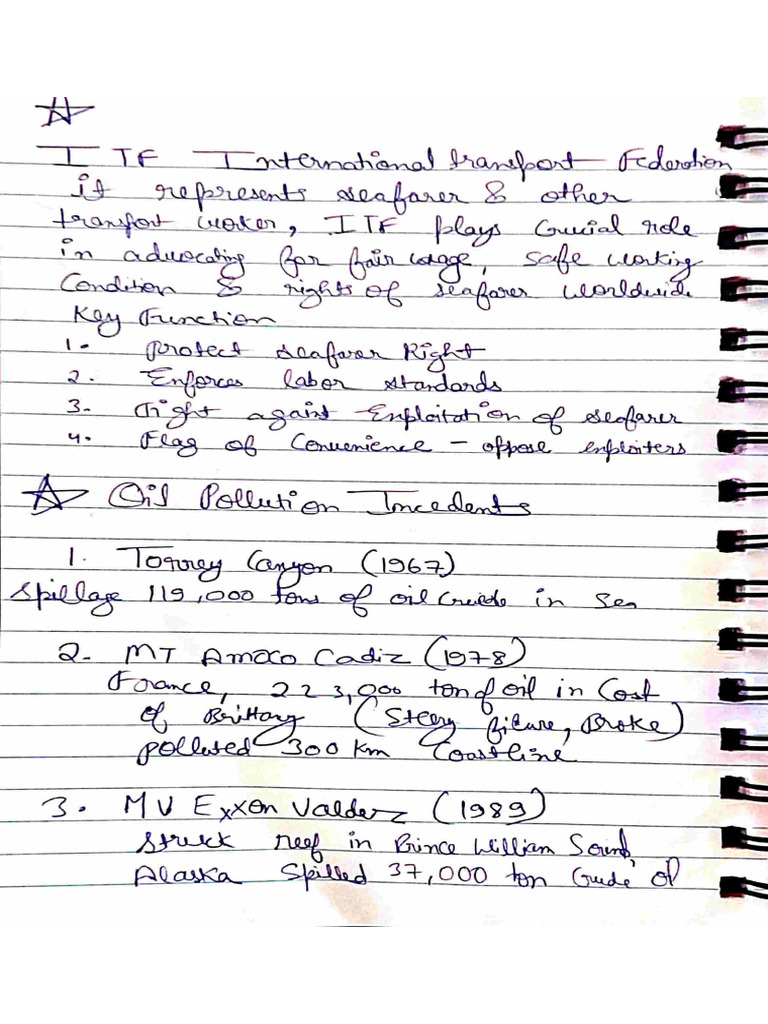 ITF International transport Federation
it represents seafarer & other
transport worker, ITF plays crucial role
in advocating for fair wage, safe working
Condition & rights of seafarer worldwide
Key Function
1. Protect seafarer Right
2. Enforces labor standards
3. Fight againt Exploitation of seafarer
4. Flag of Convenience - oppose exploiters
Oil Pollution Incedents
1. Torrey Canyon (1967)
Spillage 119,000 tons of oil crude in Sea
2. MT Amoco Cadiz (1978)
France, 223,000 ton of oil in Cost
of Brittany (Steery filure, Broke)
polluted 300 km Coastline
3. MV Exxon Valderz (1989)
Struck reef in Prince William Sound,
Alaska spilled 37,000 ton Crude of